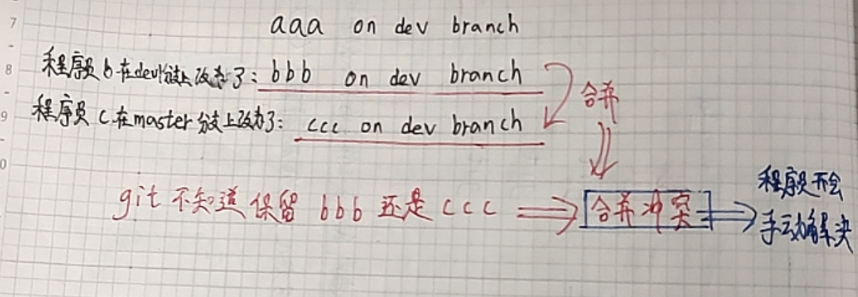 aaa on dev branch
程序员b在dev分支上改为了:bbb on dev branch
程序员c在master分支上改为了:ccc on dev branch
合并
git不知道保留 bbb 还是 ccc
合并冲突
程序员
手动解决